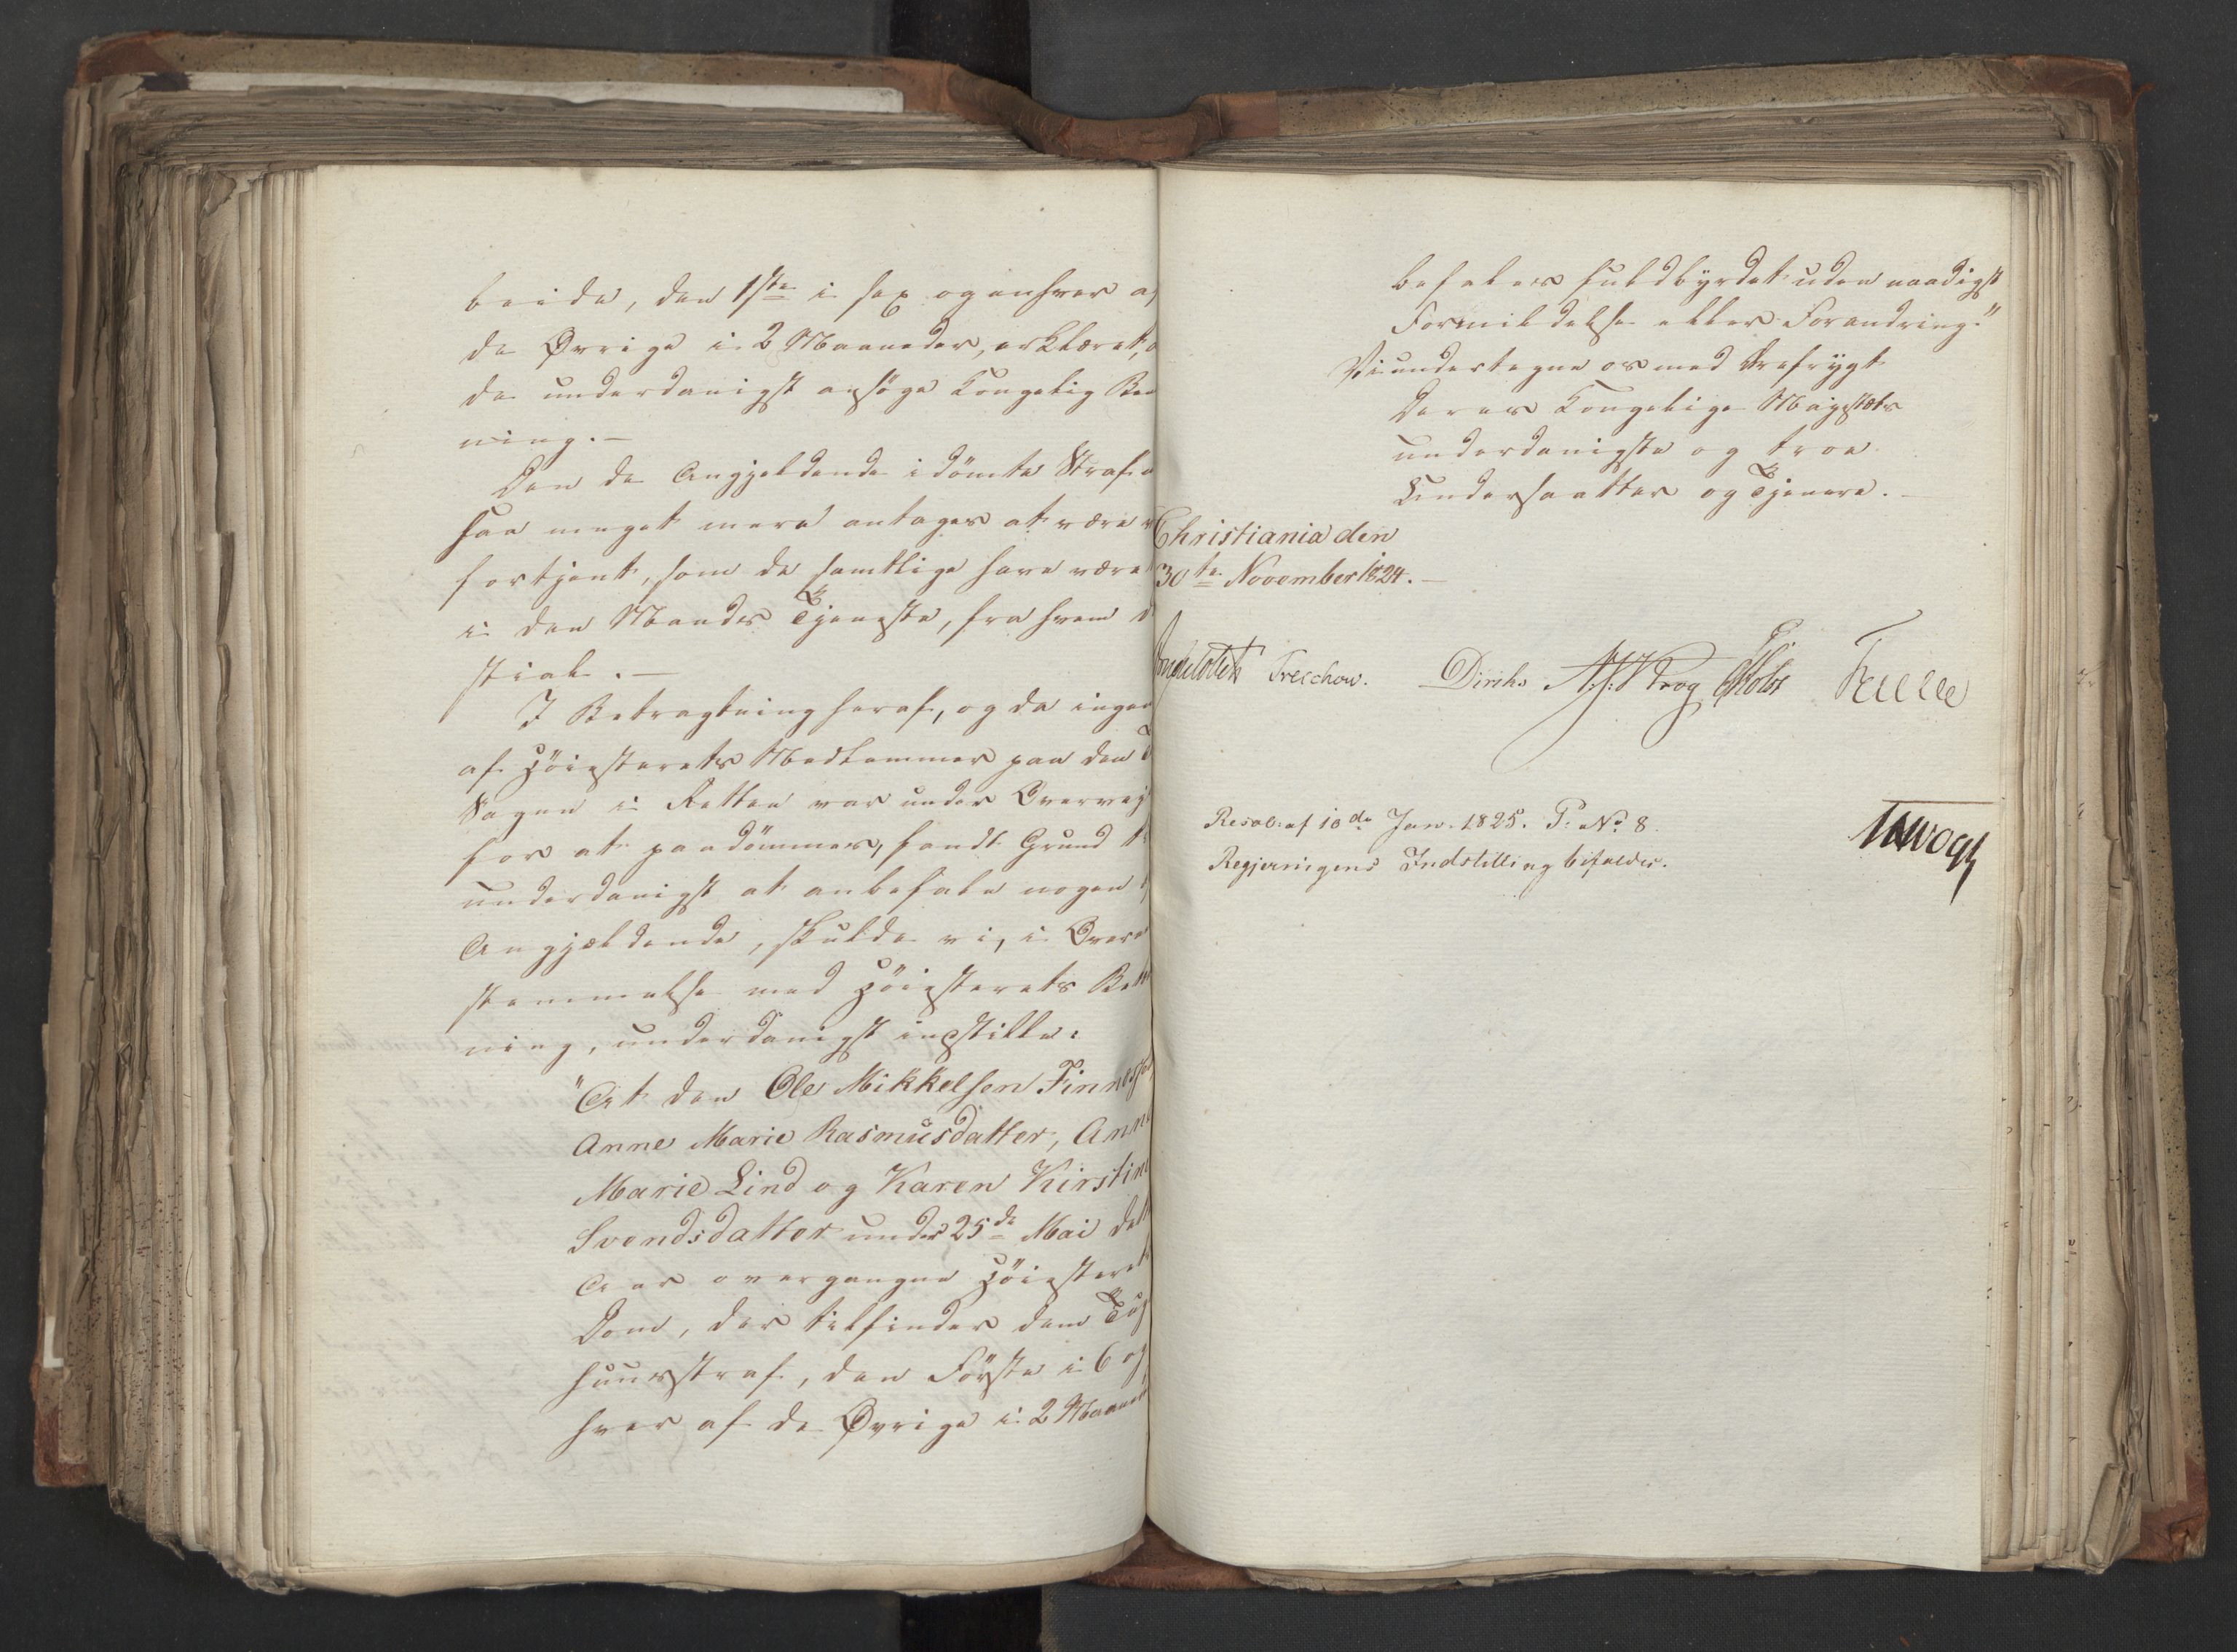 beide, den 1ste i sex og enhver af
de Øvrige i 2 Maaneder, erklæret,
de underdanigst ansøge Kongelig Ben
ning.—
Den de Angjeldende idömte Straf
saa meget mere antages at være
fortjent, som de samtlige have være
i den Mands Tjeneste, fra hvem
stial.—
I Betragtning heraf, og da ingen
af Höiesterets Medlemmer paa den
Sagen i Retten var under Overvej
for at paadömmes, fandt Grund
underdanigst at anbefale nogen
Angjældende, skulde vi, i Overe
stemmelse med Höiesterets Betæ
ning, underdanigst indstille:
"At den Ole Mikkelsen Finness
Anne Marie Rasmusdatter, Anne
Marie Lind og Karen Kirstine
Svendsdatter under 25de Mai dette
Aar overgangne Höiesteret
Dom, der tilfinder dem Tug
huusstraf, den Förste i 6 og
hver af de Øvrige i 2 Maaned
befales fuldbyrdet uden naadigst
Formildelse eller Forandring."
Vi undertegne os med Ærefrygt
Deres Kongelige Majestæts
underdanigste og troe
Undersaatter og Tjenere.—
Christiania den
30te November 1824.—
Treschow. Diriks Krog Holst
Resol: af 10de Jan. 1825. P. No 8.
Regjeringens Indstilling bifaldes.